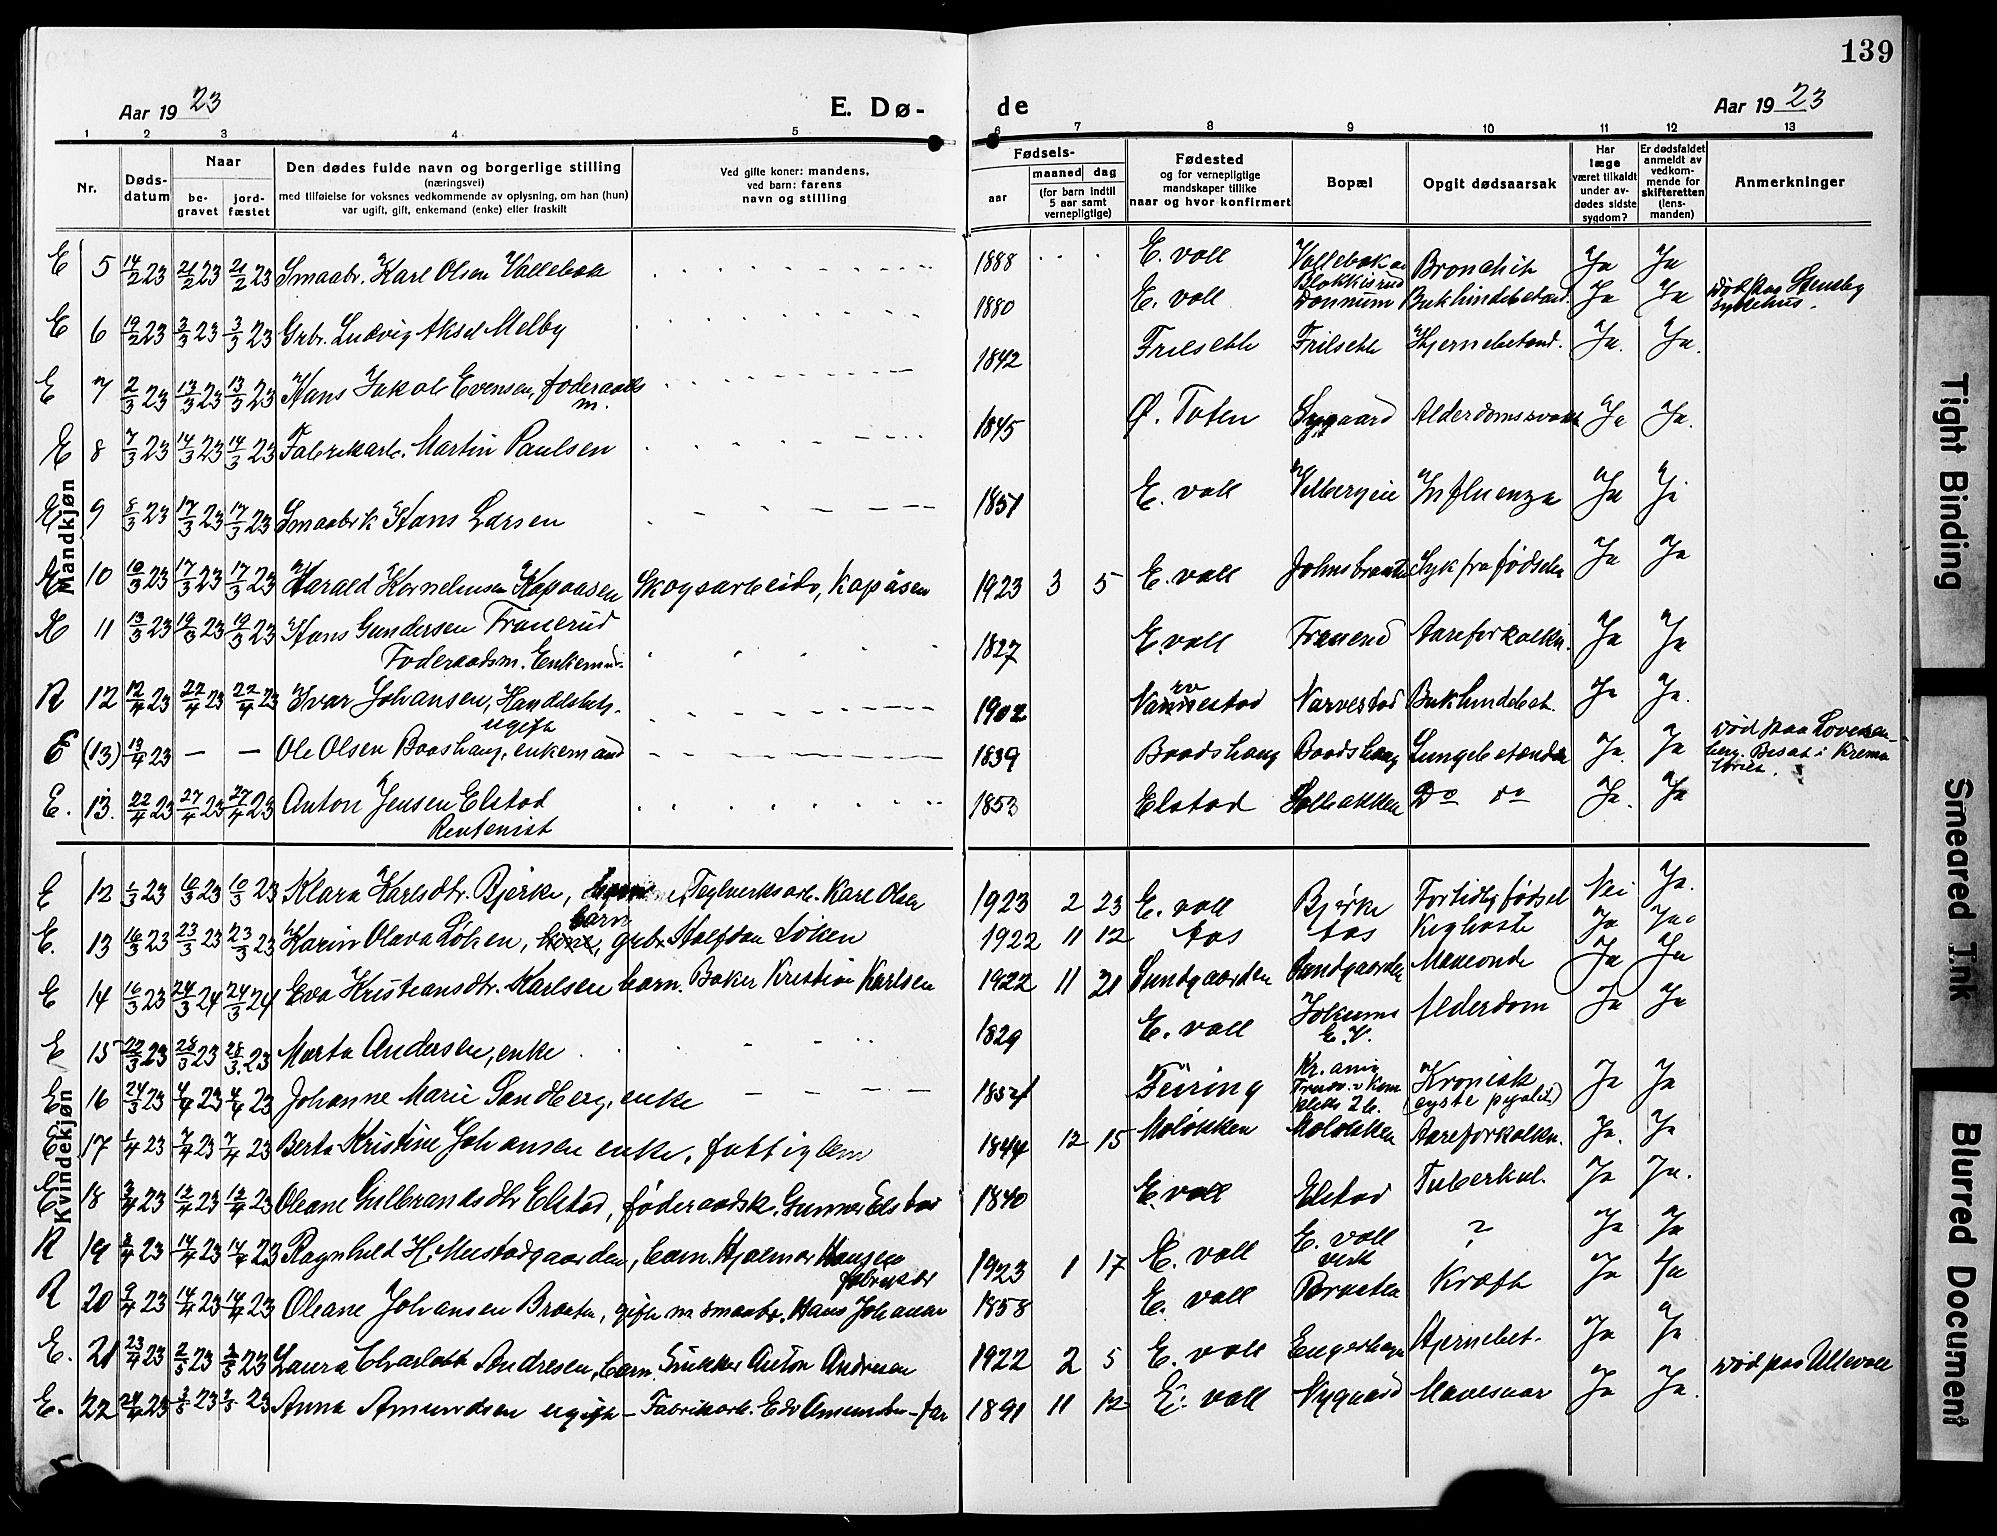 139
Aar 1923 E. Dø- de Aar 1923
1 2 3 4 5 6 7 8 9 10 11 12 13
Nr. Dødsdatum Naar begravet jordfæstet
Den dødes fulde navn og borgerlige stilling
(næringsvei)
med tilføielse for voksnes vedkommende av oplysning, om han (hun)
var ugift, gift, enkemand (enke) eller fraskilt
Ved gifte koner: mandens,
ved barn: farens
navn og stilling
Fødsels- aar maaned dag
(for barn indtil 5 aar samt vernepligtige)
Fødested
og for vernepligtige
mandskaper tillike
naar og hvor konfirmert
Bopæl
Opgit dødsaarsak
Har læge været tilkaldt under avdødes sidste sygdom?
Er dødsfaldet anmeldt av vedkommende for skifteretten (lensmanden)
Anmerkninger
Mandkjøn
E 5 14/2 23 21/2 23 21/2 23 Smaabr. Karl Olsen Vallebæk 1888 E. voll Bronchit Ja Ja
E 6 19/2 23 3/3 23 3/3 23 Grbr. Ludvig Aksel Melby 1880 E. voll Dønnum Bukhindebetænd. Ja Ja Død paa Stensby sykehus.
E 7 2/3 23 13/3 23 13/3 23 Hans Jakob Evensen, føderaads m. 1842 Frilseth Frilseth Hjernebetænd. Ja. Ja.
E 8 7/3 23 14/3 23 14/3 23 Fabrikarb. Martin Paulsen 1845 Ø. Toten Sygaard Ja Ja.
E 9 8/3 23 17/3 23 17/3 23 Smaabrk Hans Larsen 1851 E. voll Influenza Ja Ja
E 10 10/3 23 17/3 23 17/3 23 Harald Kornelius Kopaasen Skogsarbeider, Kopåsen 1923 3 5 E. voll Johnsbraaten Syk fra fødselen Ja Ja
E 11 13/3 23 19/3 23 19/3 23 Hans Gundersen Tranerud
Føderaadsm. Enkem. 1827 E. voll Tranerud Aareforkalkn. Ja Ja
R 12 12/4 23 22/4 23 22/4 23 Ivar Johansen, Handelsbetj.
ugift 1902 Narvestad Narvestad Bukhindebet. Ja Ja.
E (13) 19/4 23 — — Ole Olsen Baashaug, enkemand 1839 Baadshaug Baadshaug Lungebetændelse Ja. Ja Død paa Lovisenberg. Bisat i Krematoriet.
E. 13. 22/4 23 27/4 23 27/4 23 Anton Jensen Elstad
Rentenist 1853 Elstad Solbakken Do do Ja. Ja
Kvindekjøn
E 12 1/3 23 10/3 23 10/3 23 Klara Karlsdtr. Bjørke, Teglverksarb. Karl Olsen 1923 2 23 E. voll Bjørke Fortidlig fødsel Nei Ja.
E. 13 16/3 23 23/3 23 23/3 23 Karin Olava Løken, barn, grbr. Halfdan Løken 1922 11 12 do do Kighoste Ja Ja
E 14 16/3 23 24/3 24 24/3 24 Eva Kristiansdtr. Karlsen barn. Baker Kristian Karlsen 1922 11 21 Sundgaarden Sundgaarden Ja Ja
E 15 22/3 23 28/3 23 28/3 23 Marta Andersen, enke 1829 E. voll Alderdom Ja Ja
E 16 24/3 23 4/4 23 4/4 23 Johanne Marie Sandberg, enke 1854 Feiring Kronisk Ja Ja
E 17 1/4 23 7/4 23 7/4 23 Berta Kristine Johansen enke, fattiglem 1844 12 15 Moløkken Moløkken Aareforkalkn. Ja. Ja
E 18 3/4 23 12/4 23 12/4 23 Oleane Gulbrandsdtr Elstad, føderaadsk. Gunner Elstad 1840 E. voll Elstad Tuberkul. Ja Ja.
R 19 8/4 23 14/4 23 14/4 23 Ragnhild H. Mustadgaarden, barn. Hjalmar Hansen 1923 1 17 E. voll E. voll verk ? Ja Ja
R 20 9/4 23 14/4 23 14/4 23 Oleane Johansen Braaten, gift m smaabr. Hans Johansen 1858 E. voll Braaten Kræft Ja Ja
E. 21 23/4 23 2/5 23 2/5 23 Laura Charlotte Andresen, barn. Snekker Anton Andresen 1922 2 5 E. voll Hjernebet. Ja Ja
E. 22 24/4 23 3/5 23 3/5 23 Anna Amundsen ugift – Fabrikarb. Edv Amundsen – far 1891 11 12 E. voll Nygaard Mavesaar Ja Ja. Død paa Ullevoll
Tight Binding
Smeared Ink
Blurred Document